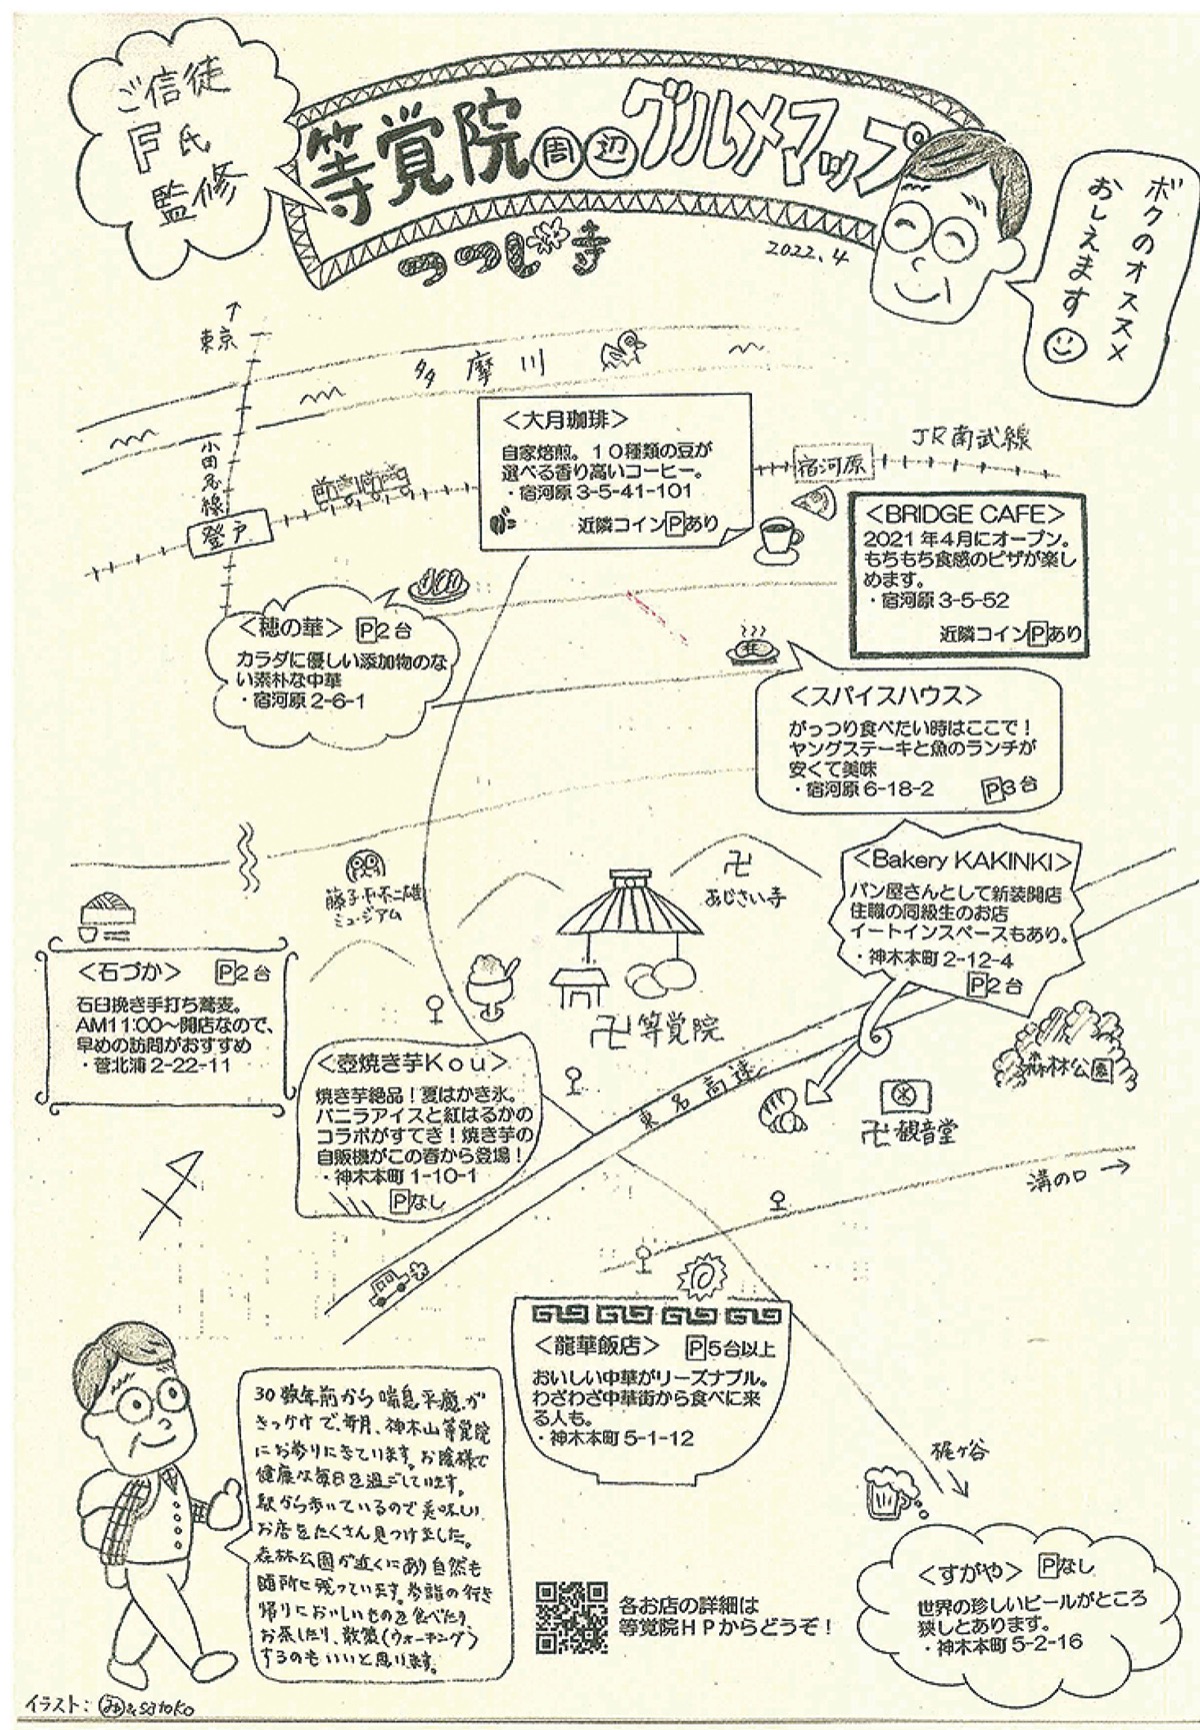 ご信徒
F氏
監修
等覚院周辺グルメマップ
つつじ寺
2022.4
ボクのオススメ
おしえます
↑
東京
多摩川
小田急線
登戸
JR南武線
宿河原
＜大月珈琲＞
自家焙煎。１０種類の豆が
選べる香り高いコーヒー。
・宿河原3-5-41-101
近隣コインPあり
＜BRIDGE CAFE＞
2021年4月にオープン。
もちもち食感のピザが楽し
めます。
・宿河原3-5-52
近隣コインPあり
＜穂の華＞ P2台
カラダに優しい添加物のな
い素朴な中華
・宿河原2-6-1
＜スパイスハウス＞
がっつり食べたい時はここで！
ヤングステーキと魚のランチが
安くて美味
・宿河原6-18-2
P3台
＜Bakery KAKINKI＞
パン屋さんとして新装開店
住職の同級生のお店
イートインスペースもあり。
・神木本町2-12-4
P2台
藤子・F・不二雄
ミュージアム
卍
あじさい寺
＜石づか＞ P2台
石臼挽き手打ち蕎麦。
AM11:00～開店なので、
早めの訪問がおすすめ
・菅北浦2-22-11
卍等覚院
森林公園
＜壺焼き芋Ｋｏｕ＞
焼き芋絶品！夏はかき氷。
バニラアイスと紅はるかの
コラボがすてき！焼き芋の
自販機がこの春から登場！
・神木本町1-10-1
Pなし
東名高速
卍観音堂
溝の口→
＜龍華飯店＞ P5台以上
おいしい中華がリーズナブル。
わざわざ中華街から食べに来
る人も。
・神木本町5-1-12
梶ヶ谷
30数年前から喘息平癒が
きっかけで、毎月、神木山等覚院
にお参りにきています。お陰様で
健康な毎日を過ごしています。
駅から歩いているので美味しい
お店をたくさん見つけました。
森林公園が近くにあり自然も
随所に残っています。参詣の行き
帰りにおいしいものを食べたり、
お茶したり、散策(ウォーキング)
するのもいいと思います。
＜すがや＞ Pなし
世界の珍しいビールがところ
狭しとあります。
・神木本町5-2-16
各お店の詳細は
等覚院ＨＰからどうぞ！
イラスト：みゆ&satoko